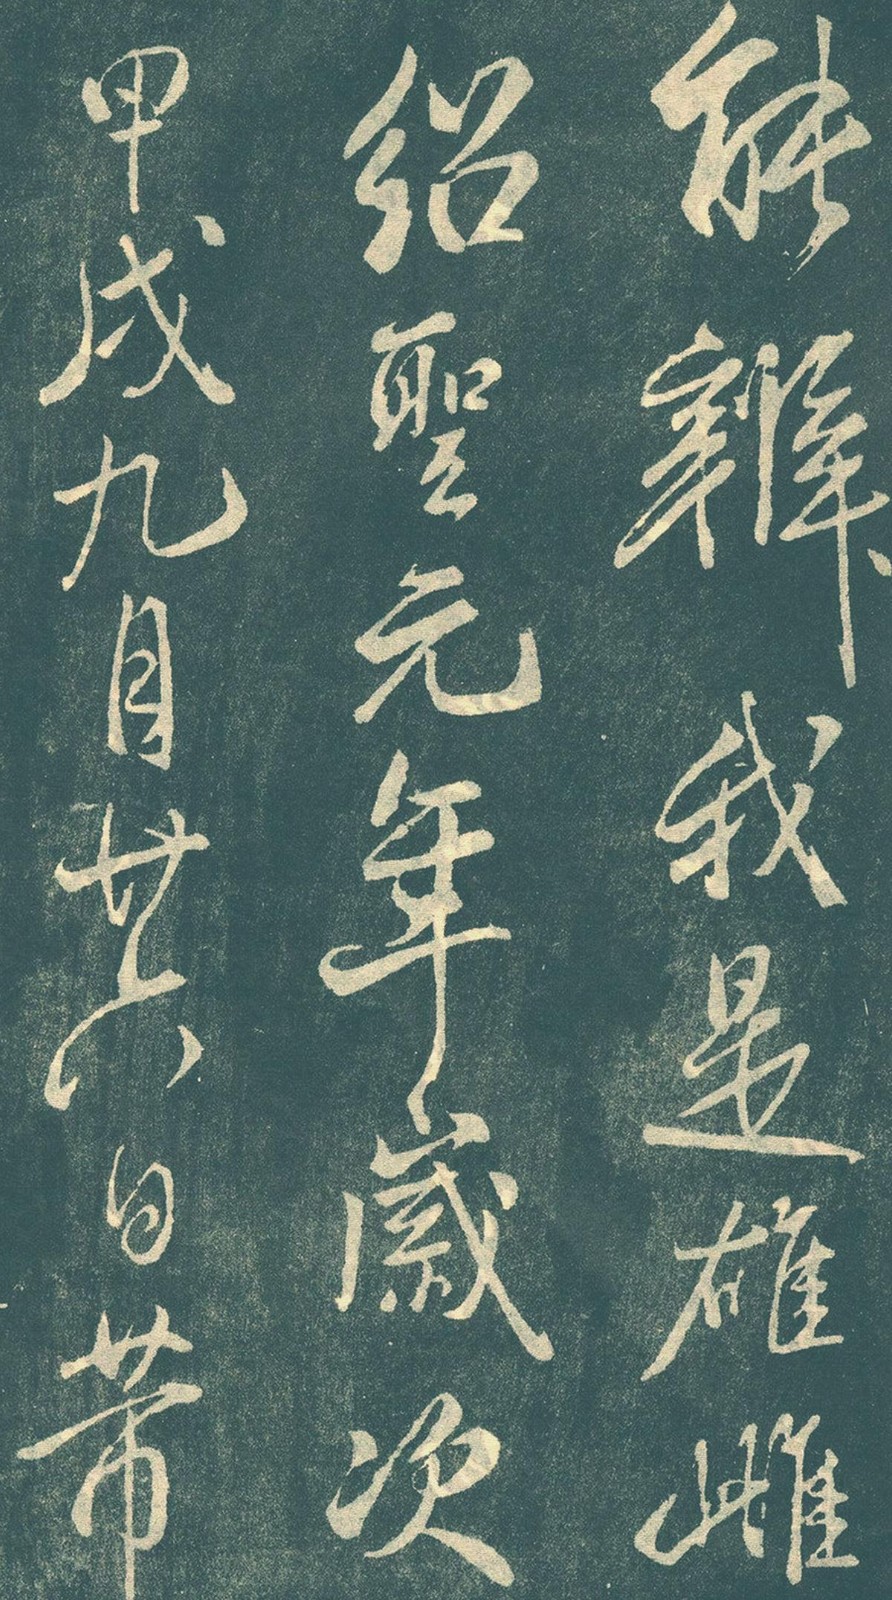 能辨我是雄雌
紹聖元年歲次
甲戌九月廿六日带